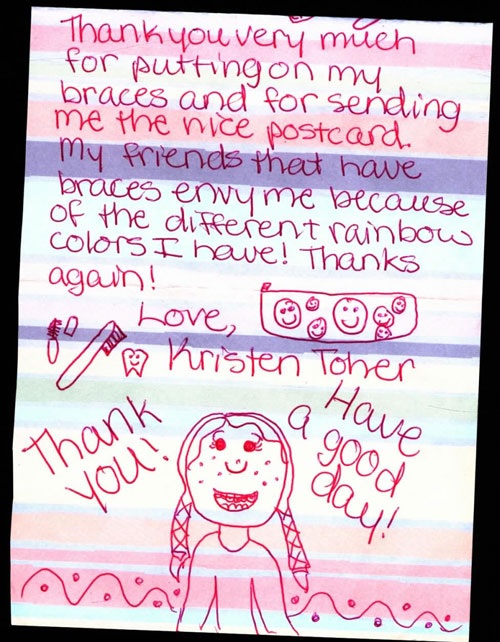 Thank you very much
for putting on my
braces and for sending
me the nice postcard.
My friends that have
braces envy me because
of the different rainbow
colors I have! Thanks
again!
Love,
Kristen Toher
Thank
you!
Have
a good
day!